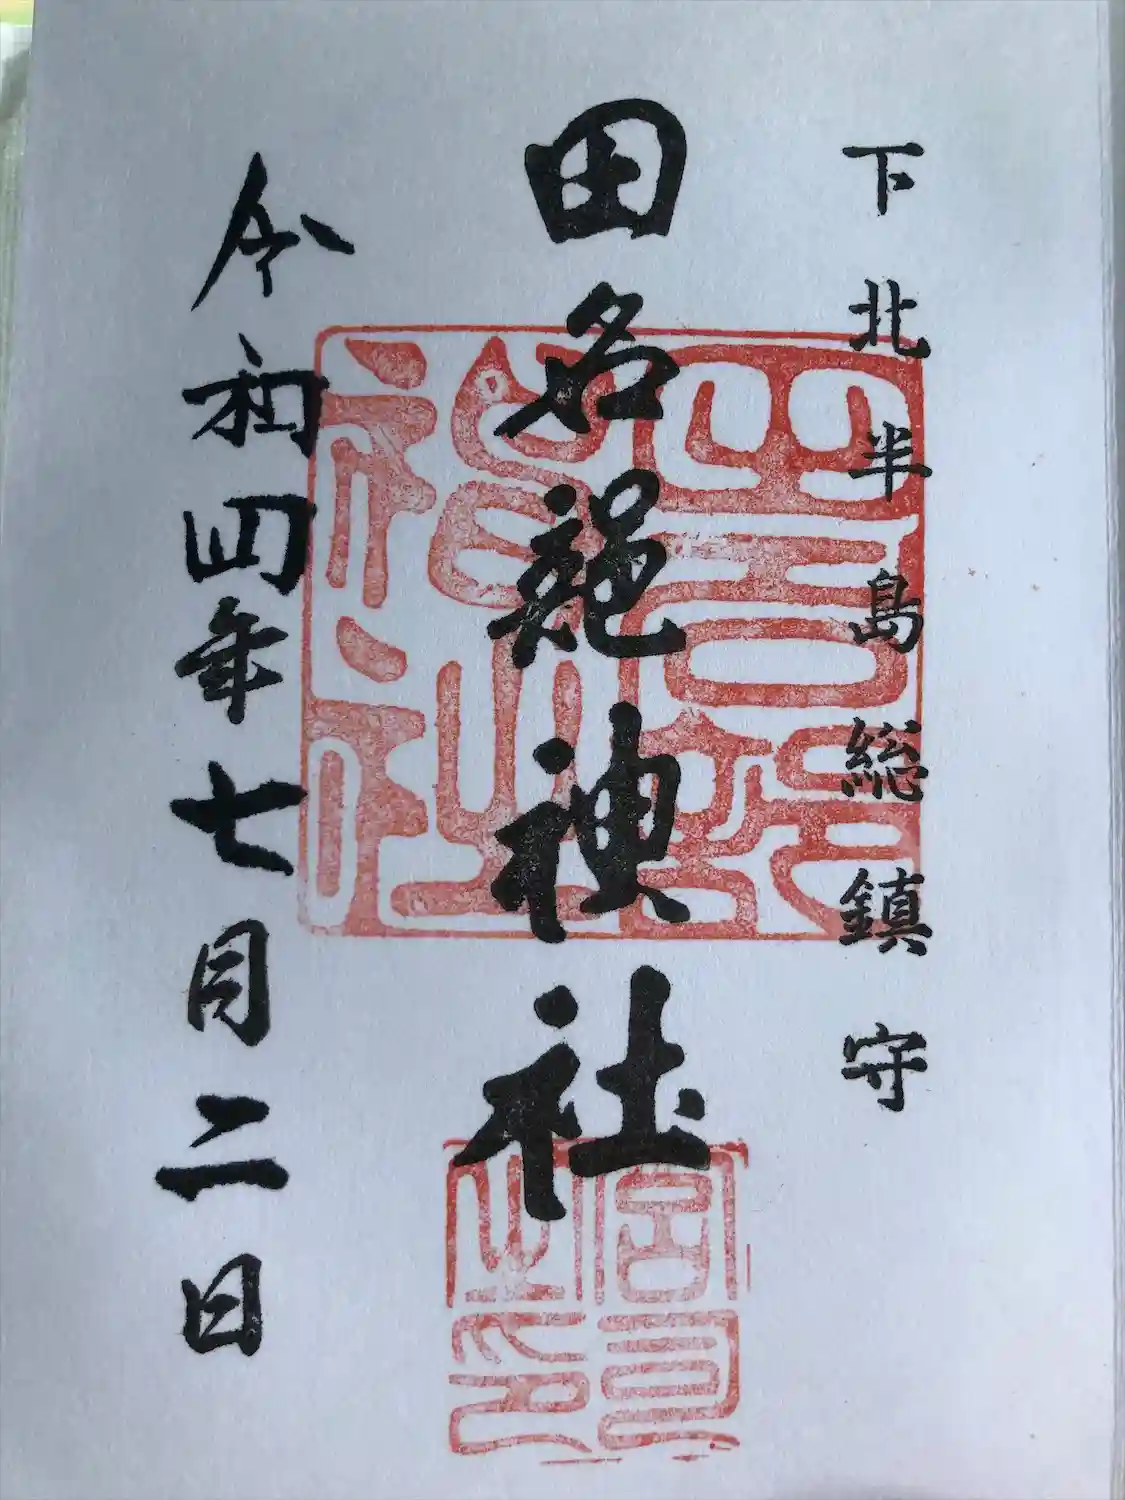 下北半島総鎮守
田名部神社
令和四年七月二日
宮司之印